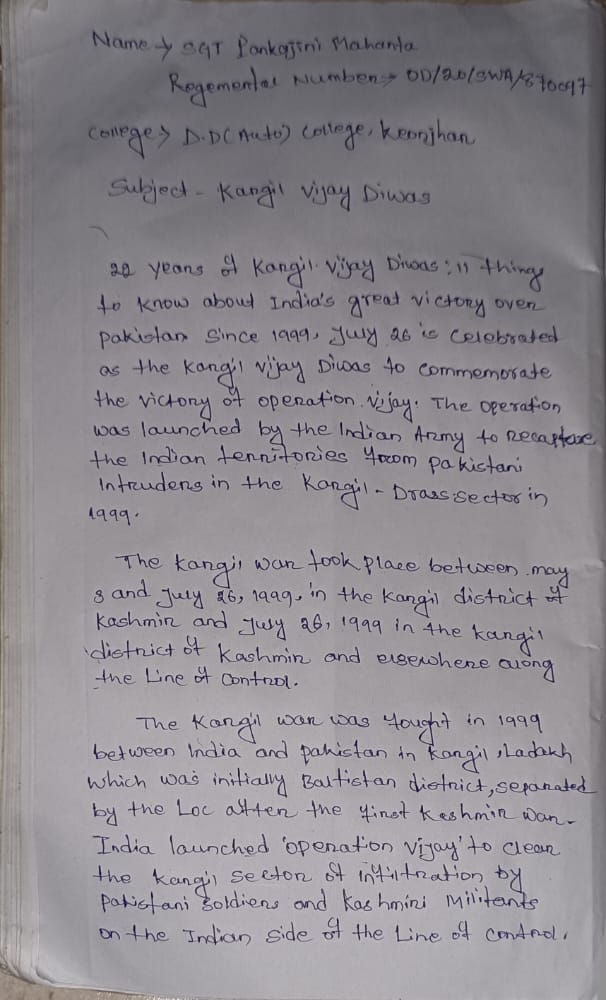 Name → SGT Pankajini Mahanta
Regemental Number → OD/20/SWA/870097
College → D.D(Auto) College, Keonjhar
Subject - Kargil Vijay Diwas
22 years of Kargil Vijay Diwas : 11 things
to know about India's great victory over
Pakistan Since 1999, July 26 is celebrated
as the Kargil Vijay Diwas to commemorate
the victory of operation vijay. The operation
was launched by the Indian Army to recapture
the Indian territories from pakistani
Intruders in the Kargil - Drass sector in
1999.
The Kargil war took place between may
8 and July 26, 1999, in the Kargil district of
Kashmir and July 26, 1999 in the Kargil
district of Kashmir and elsewhere along
the Line of Control.
The Kargil war was fought in 1999
between India and pakistan in Kargil, Ladakh
which was initially Baltistan district, separated
by the LOC after the first Kashmir war.
India launched 'operation vijay' to clear
the Kargil sector of infiltration by
Pakistani soldiers and Kashmiri Militants
on the Indian side of the Line of control.